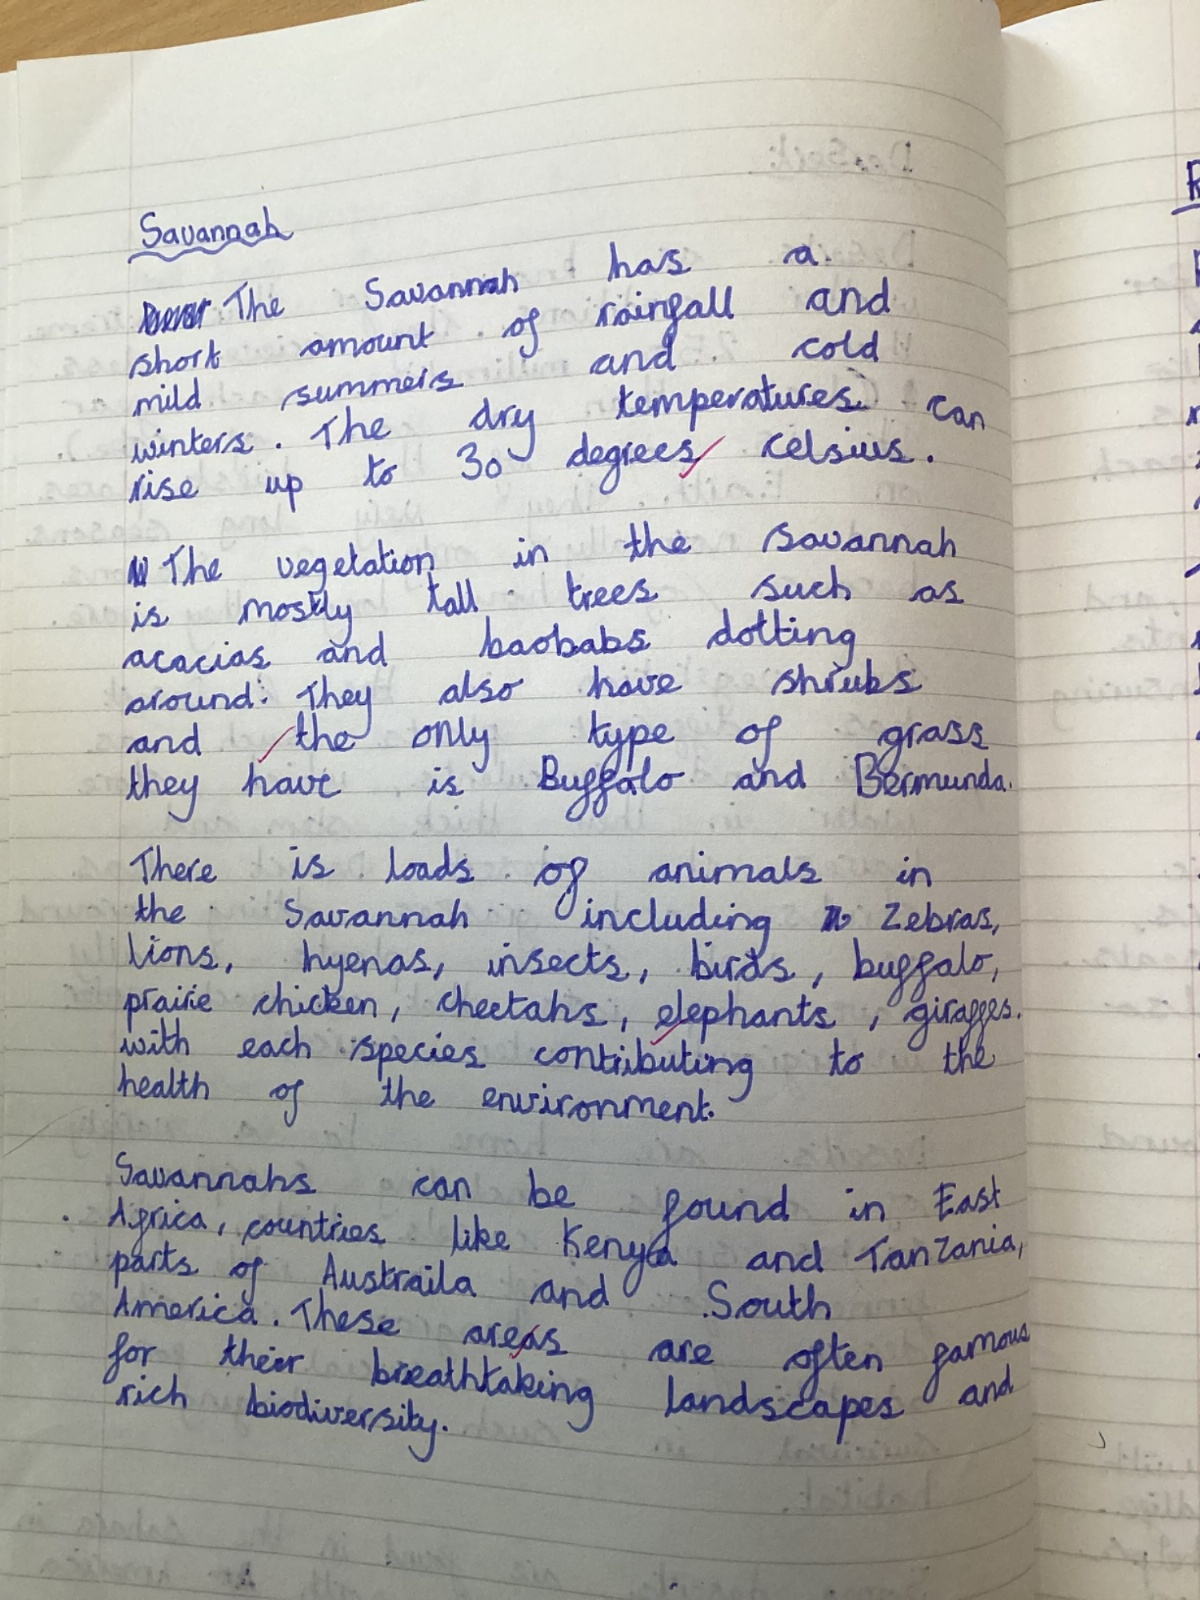 Savannah
The Savannah has a
short amount of rainfall and
mild summers and cold
winters. The dry temperatures can
rise up to 30 degrees celsius.
The vegetation in the savannah
is mostly tall trees such as
acacias and baobabs dotting
around. They also have shrubs
and the only type of grass
they have is Buffalo and Bermunda.
There is loads of animals in
the Savannah including Zebras,
lions, hyenas, insects, birds, buffalo,
prairie chicken, cheetahs, elephants, giraffes.
with each species contributing to the
health of the environment.
Savannahs can be found in East
Africa, countries like Kenya and TanZania,
parts of Austraila and South
America. These areas are often famous
for their breathtaking landscapes and
rich biodiversity.